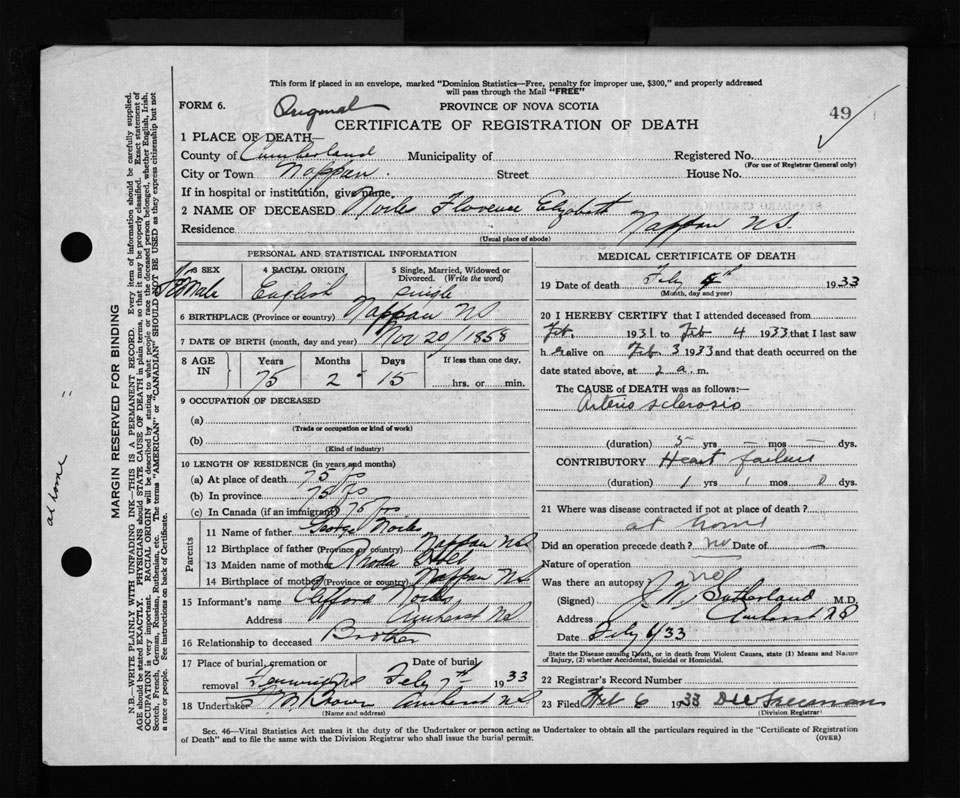 This form if placed in an envelope, marked "Dominion Statistics—Free, penalty for improper use, $300," and properly addressed
will pass through the Mail "FREE"
FORM 6. Original PROVINCE OF NOVA SCOTIA 49
CERTIFICATE OF REGISTRATION OF DEATH
1 PLACE OF DEATH—
County of Cumberland Municipality of Registered No.
(For use of Registrar General only)
City or Town Nappan. Street House No.
If in hospital or institution, give name
2 NAME OF DECEASED Florence Elizabeth
Residence Nappan N.S.
(Usual place of abode)
PERSONAL AND STATISTICAL INFORMATION
3 SEX 4 RACIAL ORIGIN 5 Single, Married, Widowed or
Divorced. (Write the word)
Female English Single
6 BIRTHPLACE (Province or country) Nappan N.S.
7 DATE OF BIRTH (month, day and year) Nov 20/1858
8 AGE IN Years Months Days If less than one day,
75 2 - 15 hrs. or min.
9 OCCUPATION OF DECEASED
(a)
(Trade or occupation or kind of work)
(b)
(Kind of industry)
10 LENGTH OF RESIDENCE (in years and months)
(a) At place of death 75 yrs
(b) In province 75 yrs
(c) In Canada (if an immigrant) 75 yrs.
Parents
11 Name of father George
12 Birthplace of father (Province or country) Nappan N.S
13 Maiden name of mother Rhoda
14 Birthplace of mother (Province or country) Nappan N.S.
15 Informant's name Clifford
Address Amherst N.S
16 Relationship to deceased Brother
17 Place of burial, cremation or Date of burial
removal Feby 7th 1933
18 Undertaker Brown Amherst N.S
(Name and address)
MEDICAL CERTIFICATE OF DEATH
19 Date of death Feby 4th 1933
(Month, day and year)
20 I HEREBY CERTIFY that I attended deceased from
Feb. 1931 to Feb 4 1933 that I last saw
h er alive on Feb 3 1933 and that death occurred on the
date stated above, at 2 a. m.
The CAUSE OF DEATH was as follows:—
Arterio sclerosis
(duration) 5 yrs — mos — dys.
CONTRIBUTORY Heart failure
(duration) 1 yrs 1 mos 0 dys.
21 Where was disease contracted if not at place of death?
at home
Did an operation precede death? no Date of —
Nature of operation
Was there an autopsy no
(Signed) J. W. Sutherland M.D.
Address Amherst N S
Date Feby 6/33
State the Disease causing Death, or in death from Violent Causes, state (1) Means and Nature
of Injury, (2) whether Accidental, Suicidal or Homicidal.
22 Registrar's Record Number
23 Filed Feb 6 1933
(Division Registrar)
Sec. 46—Vital Statistics Act makes it the duty of the Undertaker or person acting as Undertaker to obtain all the particulars required in the "Certificate of Registration
of Death" and to file the same with the Division Registrar who shall issue the burial permit. (OVER)
MARGIN RESERVED FOR BINDING
N.B.—WRITE PLAINLY WITH UNFADING INK—THIS IS A PERMANENT RECORD. Every item of information should be carefully supplied.
AGE should be stated EXACTLY. PHYSICIANS should STATE CAUSE OF DEATH in plain terms, so that it may be properly classified. Exact statement of
OCCUPATION is very important. RACIAL ORIGIN will be described by stating to what people or race the deceased person belonged, whether English, Irish,
Scotch, French, German, Russian, Ruthenian, etc. The terms "AMERICAN" or "CANADIAN" SHOULD NOT BE USED as they express citizenship but not
a race or people. See instructions on back of Certificate.
at home "